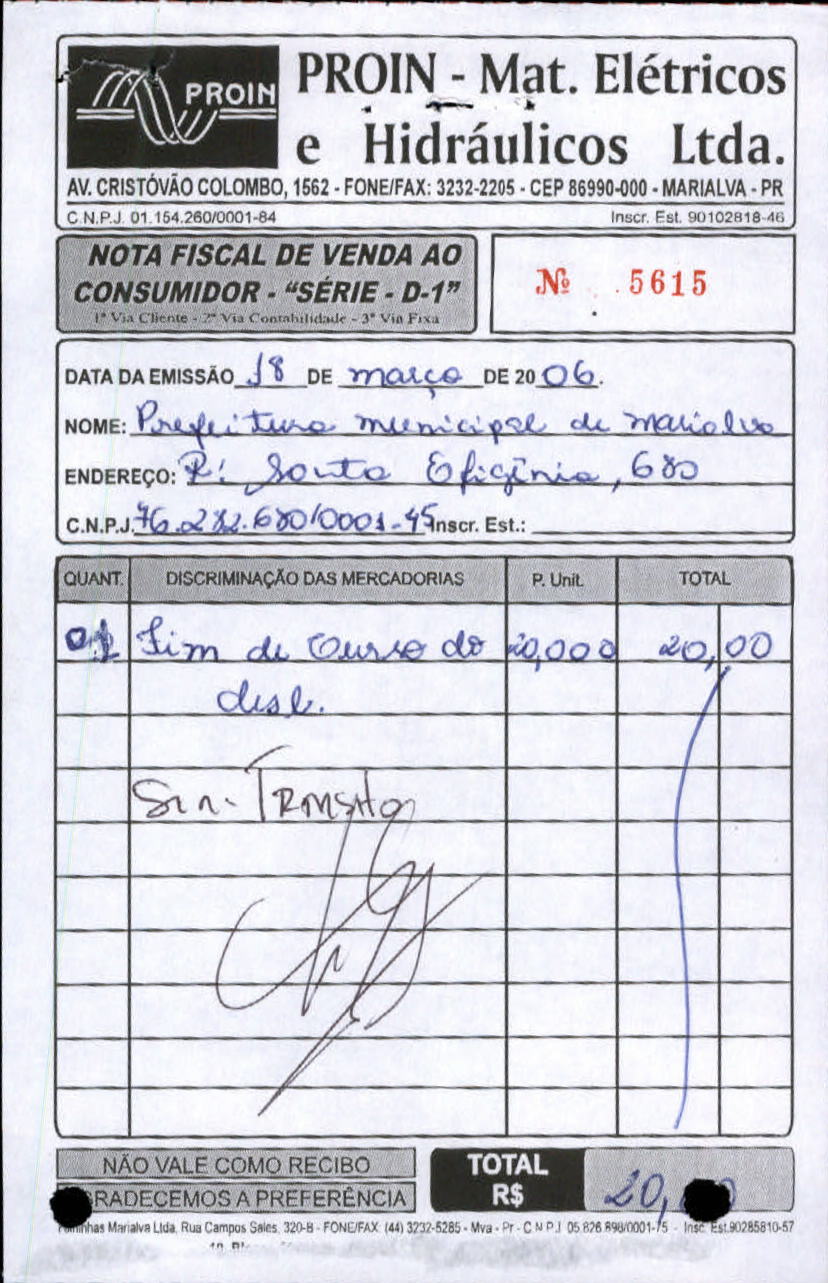 PROIN
PROIN - Mat. Elétricos
e Hidráulicos Ltda.
AV. CRISTÓVÃO COLOMBO, 1562 - FONE/FAX: 3232-2205 - CEP 86990-000 - MARIALVA - PR
C.N.P.J. 01.154.260/0001-84 Inscr. Est. 90102818-46
NOTA FISCAL DE VENDA AO
CONSUMIDOR - "SÉRIE - D-1"
1ª Via Cliente - 2ª Via Contabilidade - 3ª Via Fixa
Nº 5615
DATA DA EMISSÃO 18 DE março DE 2006.
NOME: Prefeitura municipal de marialva
ENDEREÇO: R: Santa Efigênia, 680
C.N.P.J. 76.282.680/0001-45 Inscr. Est.:
QUANT. DISCRIMINAÇÃO DAS MERCADORIAS P. Unit. TOTAL
01 Fim de Curso do 20,000 20,00
Transito
NÃO VALE COMO RECIBO
AGRADECEMOS A PREFERÊNCIA
TOTAL
R$ 20,
Marialva Ltda, Rua Campos Sales, 320-B - FONE/FAX (44) 3232-5285 - Mva - Pr - C.N.P.J. 05.826.898/0001-75 - Insc. Est.90285810-57